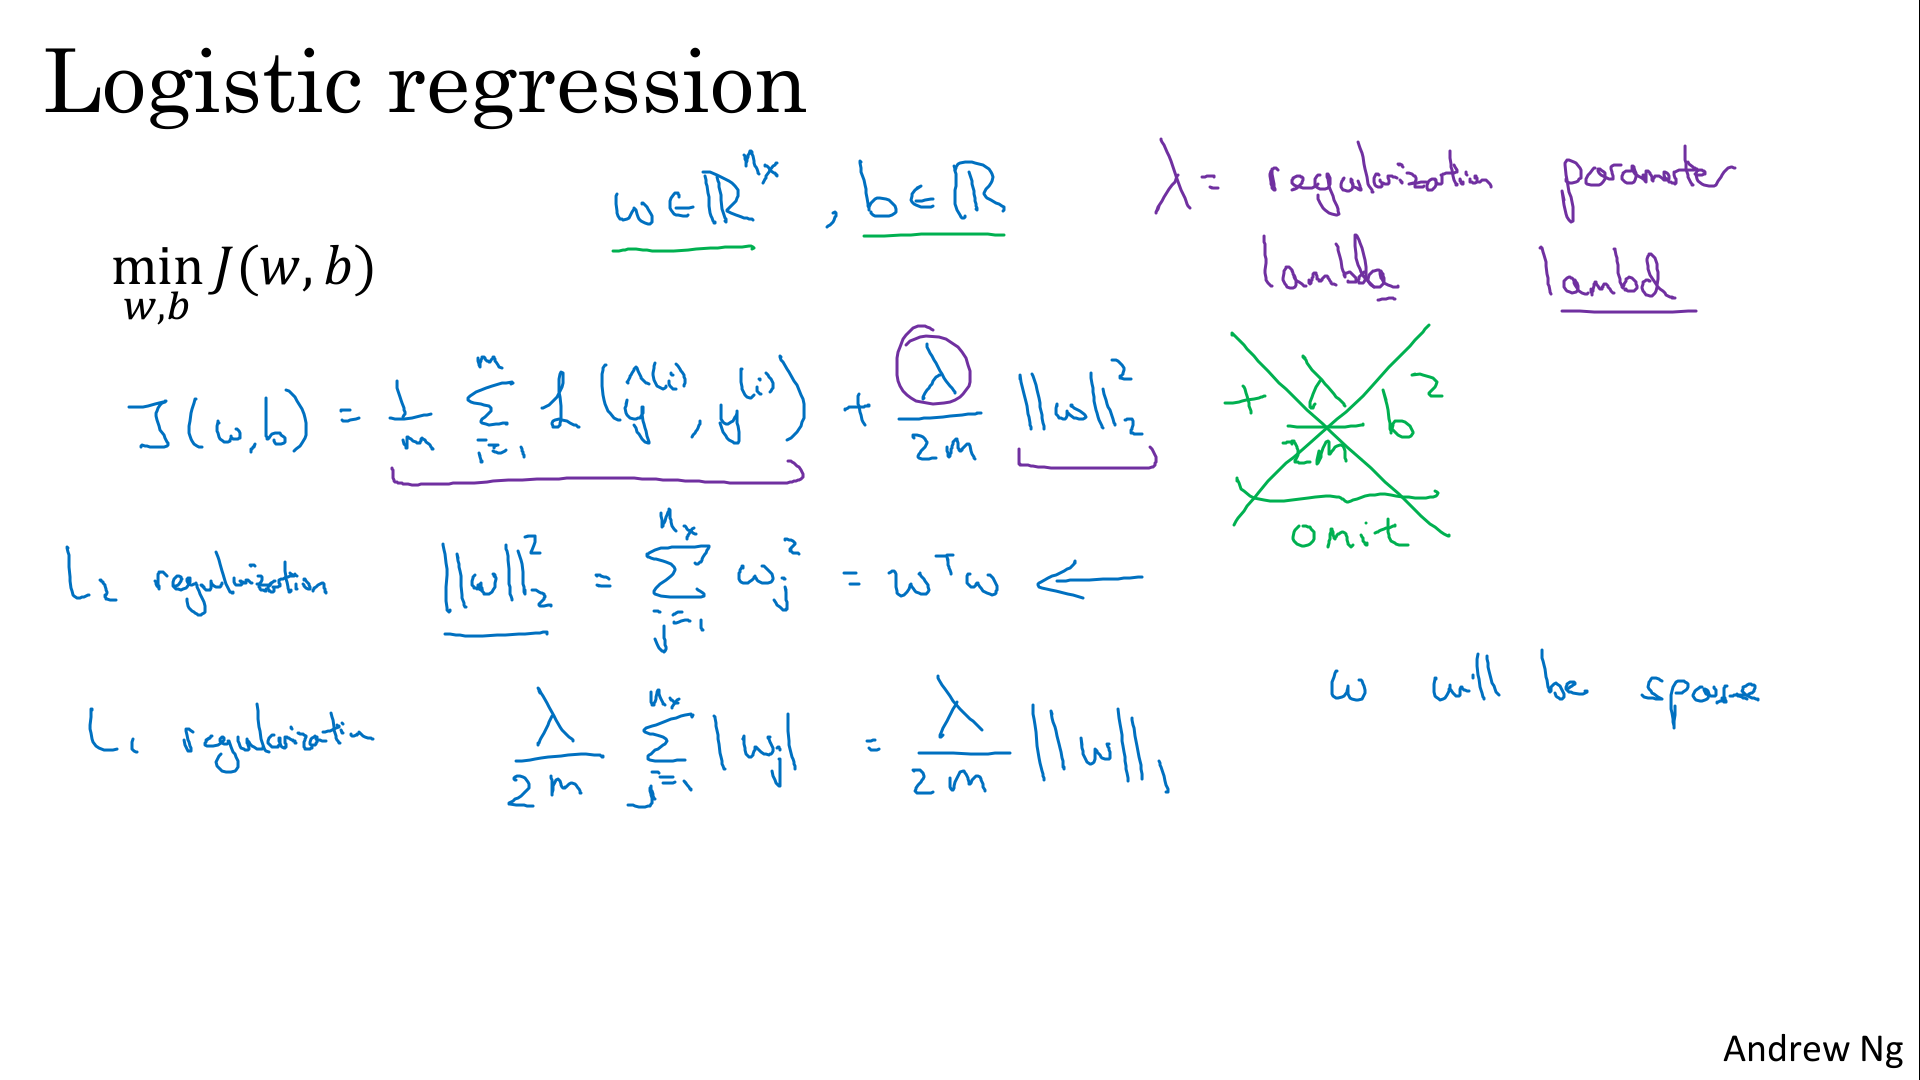 Logistic regression
w ∈ ℝ^{n_x} , b ∈ ℝ
λ = regularization parameter
lambda lambd
min_{w,b} J(w, b)
J(w,b) = 1/m Σ_{i=1}^{m} ℒ(ŷ^{(i)}, y^{(i)}) + λ/2m ||w||_2^2 + λ/2m b^2
omit
L_2 regularization ||w||_2^2 = Σ_{j=1}^{n_x} w_j^2 = w^T w ←
w will be sparse
L_1 regularization λ/2m Σ_{j=1}^{n_x} |w_j| = λ/2m ||w||_1
Andrew Ng